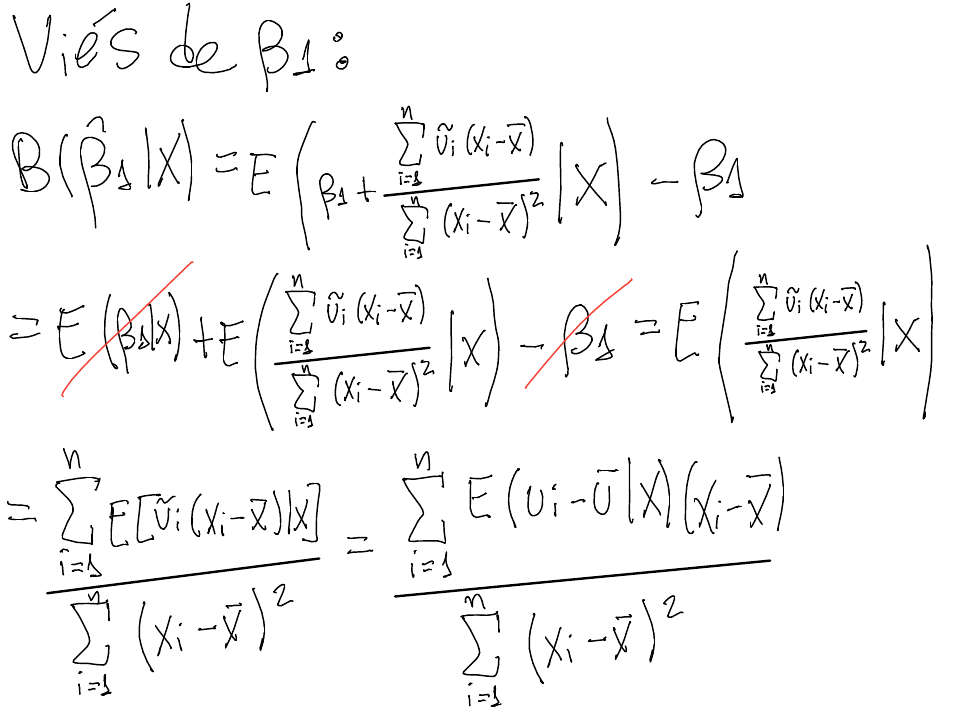 Viés de β1:
B(β̂1|X) = E(β1 + \frac{\sum_{i=1}^{n} ũi (Xi-X̄)}{\sum_{i=1}^{n} (Xi-X̄)^2} | X) - β1
= E(β1|X) + E(\frac{\sum_{i=1}^{n} ũi (Xi-X̄)}{\sum_{i=1}^{n} (Xi-X̄)^2} | X) - β1 = E(\frac{\sum_{i=1}^{n} ũi (Xi-X̄)}{\sum_{i=1}^{n} (Xi-X̄)^2} | X)
= \frac{\sum_{i=1}^{n} E[ũi (Xi-X̄)|X]}{\sum_{i=1}^{n} (Xi-X̄)^2} = \frac{\sum_{i=1}^{n} E(Ui-Ū|X)(Xi-X̄)}{\sum_{i=1}^{n} (Xi-X̄)^2}